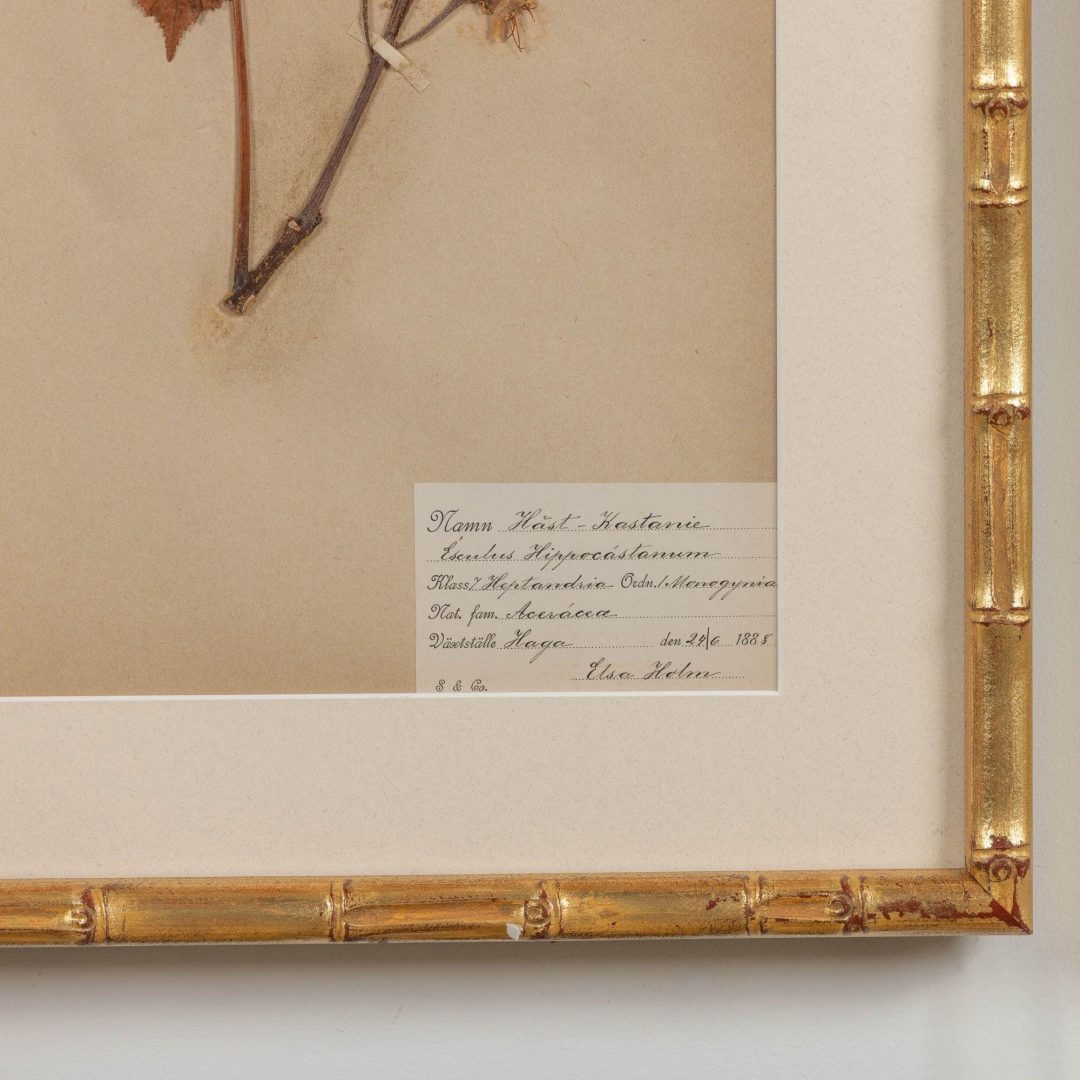 Namn Häst-Kastanie
Ésculus Hippocástanum
Klass 7 Heptandria Ordn. 1 Monogynia
Nat. fam. Aceráceæ
Växtställe Haga den 24/6 1888
Elsa Holm
S & Co.